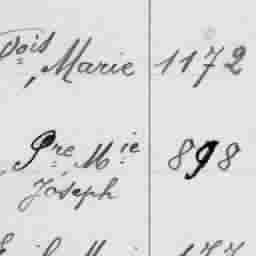 çois, Marie 1172
Pre Mie 898
Joseph